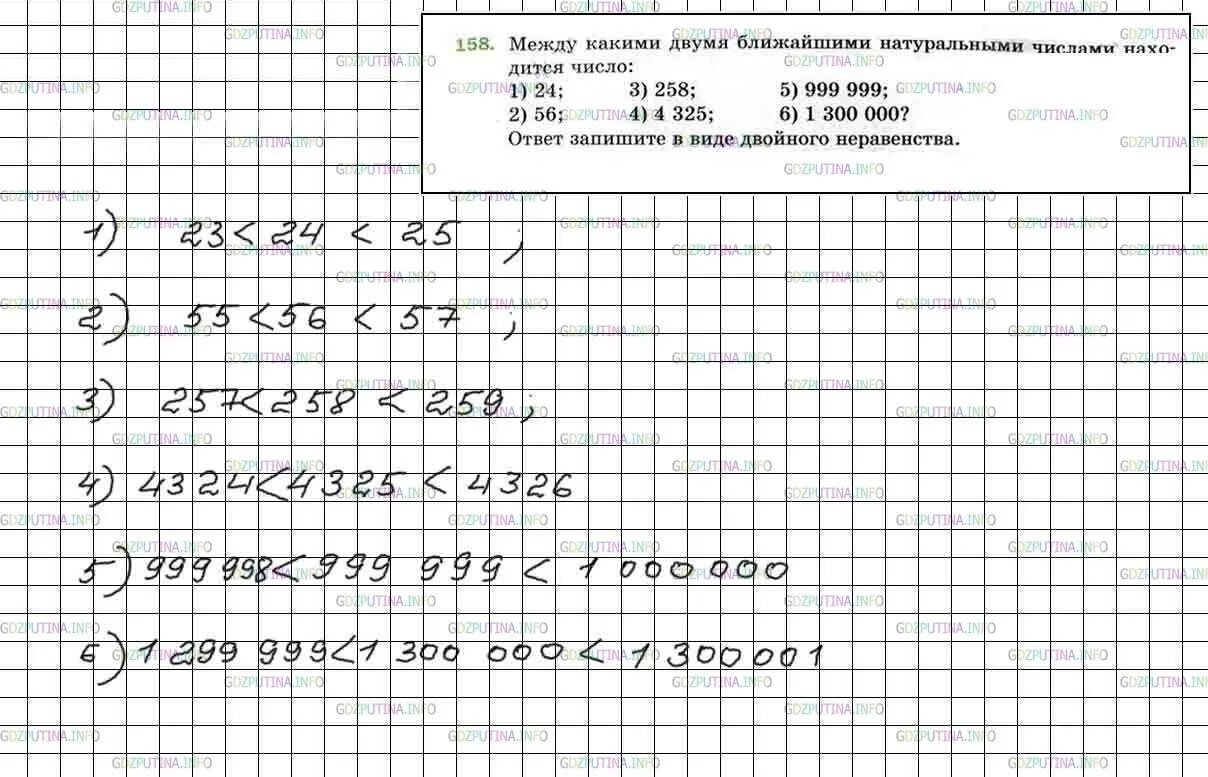 158. Между какими двумя ближайшими натуральными числами нахо-
дится число:
1) 24; 3) 258; 5) 999 999;
2) 56; 4) 4 325; 6) 1 300 000?
Ответ запишите в виде двойного неравенства.
1) 23 < 24 < 25 ;
2) 55 < 56 < 57 ;
3) 257 < 258 < 259 ;
4) 4324 < 4325 < 4326
5) 999 998 < 999 999 < 1 000 000
6) 1 299 999 < 1 300 000 < 1 300 001
GDZPUTINA.INFO